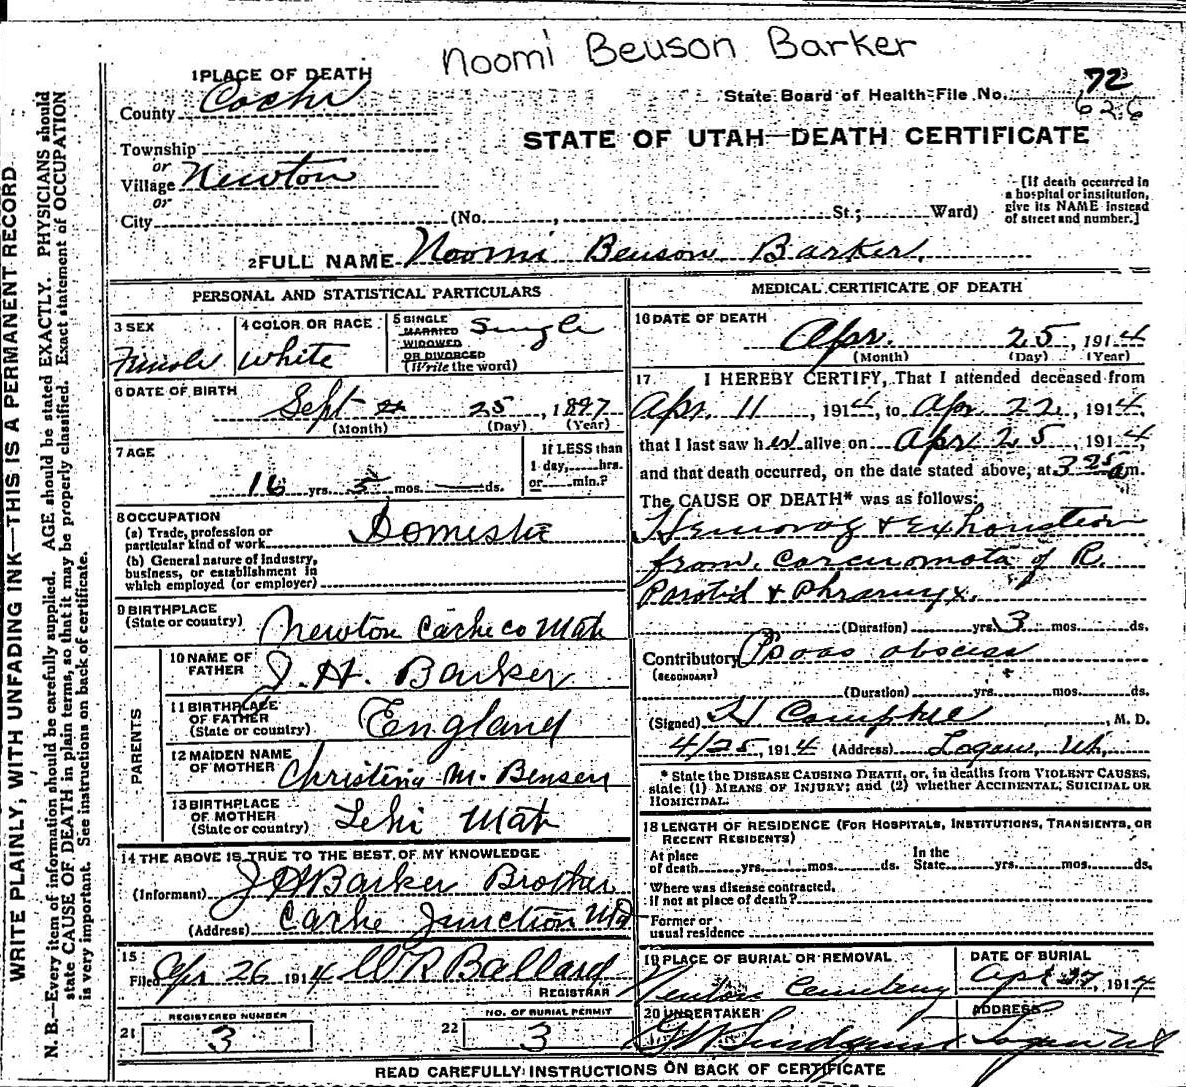 Noomi Beuson Barker
1 PLACE OF DEATH
County Cache
State Board of Health-File No. 72
626
STATE OF UTAH—DEATH CERTIFICATE
Township
or
Village Newton
or
City (No. , St.; Ward)
[If death occurred in
a hospital or institution,
give its NAME instead
of street and number.]
2 FULL NAME Noomi Beuson Barker
PERSONAL AND STATISTICAL PARTICULARS
3 SEX
Female
4 COLOR OR RACE
White
5 SINGLE
MARRIED
WIDOWED
OR DIVORCED
(Write the word)
Single
6 DATE OF BIRTH
Sept 25, 1897
(Month) (Day) (Year)
7 AGE
16 yrs. 5 mos. ds.
If LESS than
1 day, hrs.
or min.?
8 OCCUPATION
(a) Trade, profession or
particular kind of work Domestic
(b) General nature of industry,
business, or establishment in
which employed (or employer)
9 BIRTHPLACE
(State or country) Newton Cache Co Utah
PARENTS
10 NAME OF
FATHER J. H. Barker
11 BIRTHPLACE
OF FATHER
(State or country) England
12 MAIDEN NAME
OF MOTHER Christina M. Bensen
13 BIRTHPLACE
OF MOTHER
(State or country) Lehi Utah
14 THE ABOVE IS TRUE TO THE BEST OF MY KNOWLEDGE
(Informant) J H Barker Brother
(Address) Cache Junction Uta
15
Filed Apr 26 1914 W R Ballard
REGISTRAR
21 REGISTERED NUMBER
3
22 NO. OF BURIAL PERMIT
3
MEDICAL CERTIFICATE OF DEATH
16 DATE OF DEATH
Apr. 25, 1914
(Month) (Day) (Year)
17 I HEREBY CERTIFY, That I attended deceased from
Apr. 11, 1914, to Apr 22, 1914,
that I last saw her alive on Apr 25, 1914
and that death occurred, on the date stated above, at 3 25 a m.
The CAUSE OF DEATH* was as follows:
Hemorag & Exhaustion
from Carcinomata of R.
Parotid & Phraynx.
(Duration) yrs. 3 mos. ds.
Contributory Psoas abscess
(SECONDARY)
(Duration) yrs. mos. ds.
(Signed) Campbell, M. D.
4/25, 1914 (Address) Logan, Ut,
* State the DISEASE CAUSING DEATH, or, in deaths from VIOLENT CAUSES,
state (1) MEANS OF INJURY; and (2) whether ACCIDENTAL, SUICIDAL OR
HOMICIDAL.
18 LENGTH OF RESIDENCE (FOR HOSPITALS, INSTITUTIONS, TRANSIENTS, OR
RECENT RESIDENTS)
At place
of death yrs. mos. ds.
In the
State yrs. mos. ds.
Where was disease contracted,
if not at place of death?
Former or
usual residence
19 PLACE OF BURIAL OR REMOVAL
Newton Cemetery
DATE OF BURIAL
Apr 27, 1914
20 UNDERTAKER
Lindquist
ADDRESS
Logan Ut
READ CAREFULLY INSTRUCTIONS ON BACK OF CERTIFICATE
WRITE PLAINLY, WITH UNFADING INK—THIS IS A PERMANENT RECORD
N. B.—Every item of information should be carefully supplied. AGE should be stated EXACTLY. PHYSICIANS should
state CAUSE OF DEATH in plain terms, so that it may be properly classified. Exact statement of OCCUPATION
is very important. See instructions on back of certificate.